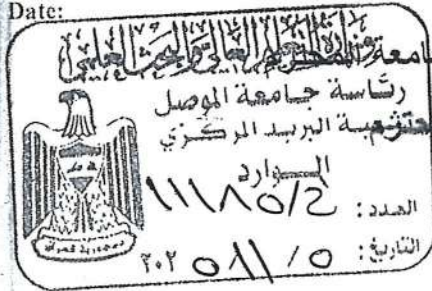 Date:
وزارة التعليم العالي والبحث العلمي
رئاسة جامعة الموصل
شعبة البريد المركزي
الـوارد
العدد: ١١١٨٥/٤
التاريخ: ٥ /١١/ ٢٠٢٥
جمهورية العراق